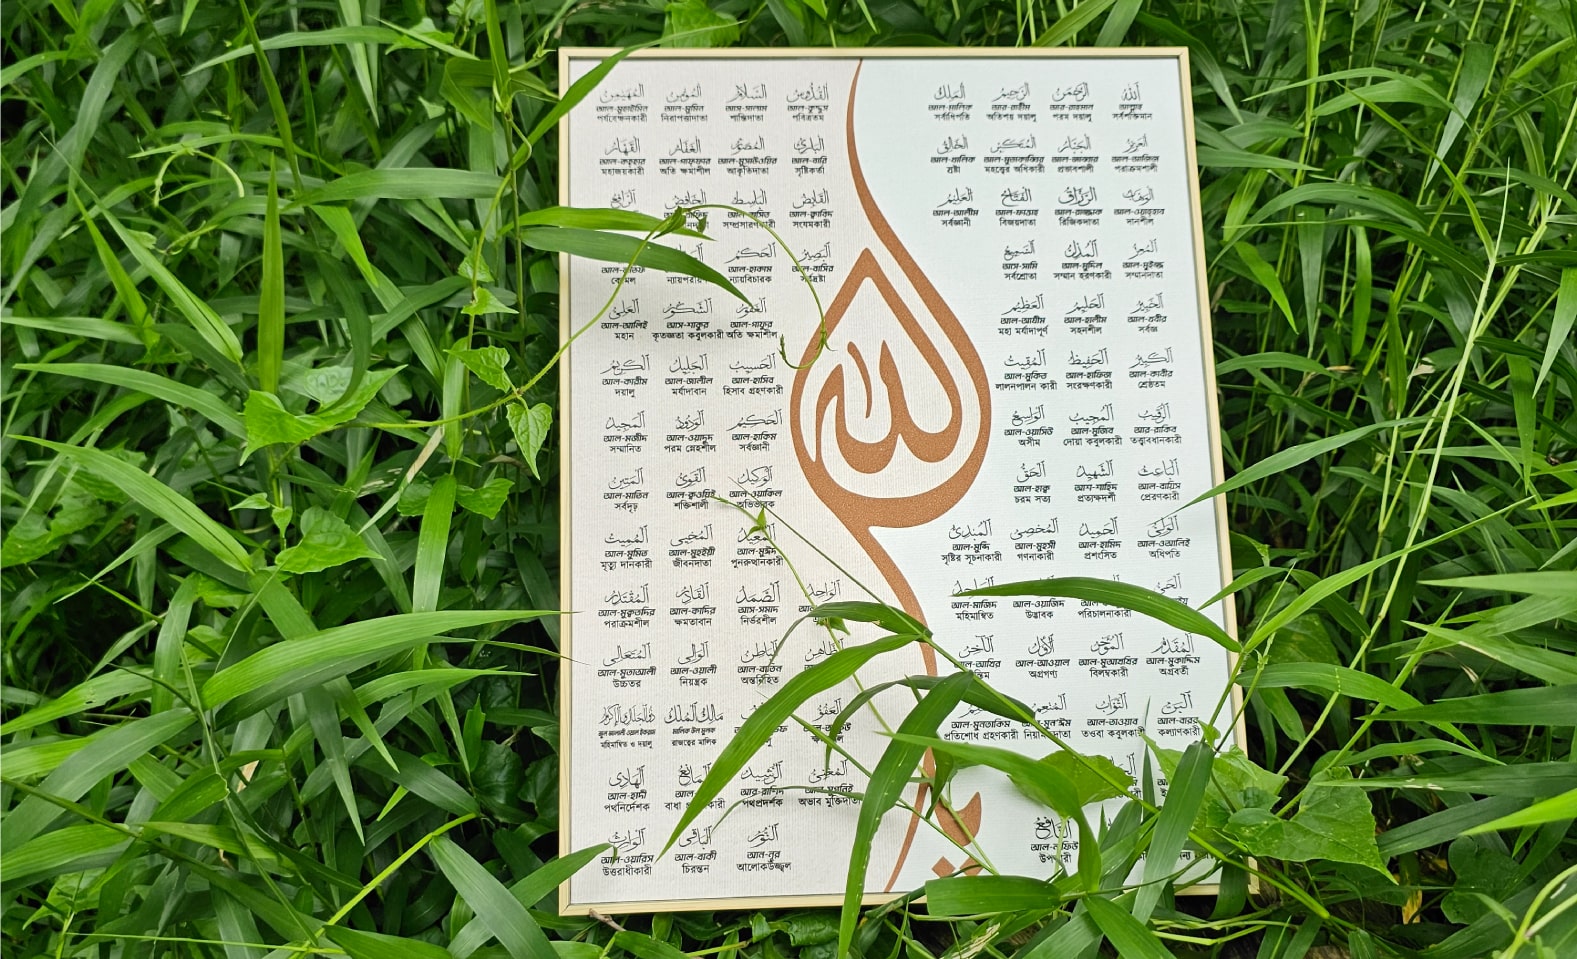 الله
আল্লাহ
সর্বশক্তিমান
الرحمن
আর-রাহমান
পরম দয়ালু
الرحيم
আর-রাহীম
অতিশয় দয়ালু
الملك
আল-মালিক
সর্বাধিপতি
القدوس
আল-কুদ্দুস
পবিত্রতম
السلام
আস-সালাম
শান্তিদাতা
المؤمن
আল-মুমিন
নিরাপত্তাদাতা
المهيمن
আল-মুহাইমিন
পর্যবেক্ষনকারী
العزيز
আল-আজিজ
পরাক্রমশালী
الجبار
আল-জাব্বার
প্রভাবশালী
المتكبر
আল-মুতাকাব্বির
মহত্ত্বের অধিকারী
الخالق
আল-খালিক
স্রষ্টা
البارئ
আল-বারি
সৃষ্টিকর্তা
المصور
আল-মুসাউওয়ির
আকৃতিদাতা
الغفار
আল-গাফ্ফার
অতি ক্ষমাশীল
القهار
আল-কাহ্হার
মহাজয়কারী
الوهاب
আল-ওয়াহ্হাব
দানশীল
الرزاق
আল-রাজ্জাক
রিজিকদাতা
الفتاح
আল-ফাত্তাহ
বিজয়দাতা
العليم
আল-আলীম
সর্বজ্ঞানী
القابض
আল-ক্বাবিদ
সংযমকারী
الباسط
সম্প্রসারণকারী
الخافض
الرافع
المعز
আল-মুইজ্জ
সম্মানদাতা
المذل
আল-মুদিল
সম্মান হরণকারী
السميع
আস-সামি
সর্বশ্রোতা
البصير
আল-বাসির
সর্বদ্রষ্টা
الحكم
আল-হাকাম
ন্যায়বিচারক
কোমল
الخبير
আল-খবীর
সর্বজ্ঞ
الحليم
আল-হালীম
সহনশীল
العظيم
আল-আযীম
মহা মর্যাদাপূর্ণ
الغفور
আল-গাফুর
অতি ক্ষমাশীল
الشكور
আস-শাকুর
কৃতজ্ঞতা কবুলকারী
العلي
আল-আলিই
মহান
الكبير
আল-কাবীর
শ্রেষ্ঠতম
الحفيظ
আল-হাফিজ
সংরক্ষণকারী
المقيت
আল-মুকিত
লালনপালন কারী
الحسيب
আল-হাসিব
হিসাব গ্রহণকারী
الجليل
আল-জালীল
মর্যাদাবান
الكريم
আল-কারীম
দয়ালু
الرقيب
আর-রাকিব
তত্ত্বাবধানকারী
المجيب
আল-মুজিব
দোয়া কবুলকারী
الواسع
আল-ওয়াসিউ
অসীম
الحكيم
আল-হাকিম
সর্বজ্ঞানী
الودود
আল-ওয়াদুদ
পরম স্নেহশীল
المجيد
আল-মজীদ
সম্মানিত
الباعث
আল-বায়িস
প্রেরণকারী
الشهيد
আশ-শাহিদ
প্রত্যক্ষদর্শী
الحق
আল-হাক্ব
চরম সত্য
الوكيل
আল-ওয়াকিল
অভিভাবক
القوي
আল-কুওয়িই
শক্তিশালী
المتين
আল-মাতিন
সর্বদৃঢ়
الولي
আল-ওআলিই
অধিপতি
الحميد
আল-হামিদ
প্রশংসিত
المحصي
আল-মুহসী
গণনাকারী
المبدئ
আল-মুব্দি
সৃষ্টির সূচনাকারী
المعيد
আল-মুঈদ
পুনরুত্থানকারী
المحيي
আল-মুহইয়ী
জীবনদাতা
المميت
আল-মুমিত
মৃত্যু দানকারী
الحي
পরিচালনাকারী
আল-ওয়াজিদ
উদ্ভাবক
الماجد
আল-মাজিদ
মহিমান্বিত
الواحد
الصمد
আস-সমাদ
নির্ভরশীল
القادر
আল-কাদির
ক্ষমতাবান
المقتدر
আল-মুক্বতদির
পরাক্রমশীল
المقدم
আল-মুকাদ্দিম
অগ্রবর্তী
المؤخر
আল-মুআখখির
বিলম্বকারী
الأول
আল-আওয়াল
অগ্রগণ্য
الآخر
الظاهر
الباطن
আল-বাতিন
অন্তর্হিত
الوالي
আল-ওয়ালী
নিয়ন্ত্রক
المتعالي
আল-মুতাআলী
উচ্চতর
البر
আল-বারর
কল্যাণকারী
التواب
আল-তাওয়াব
তওবা কবুলকারী
المنعم
আল-মুন'ঈম
আল-মুনতাকিম
প্রতিশোধ গ্রহণকারী
العفو
مالك الملك
মালিক উল মুলক
রাজত্বের মালিক
ذو الجلال والإكرام
জুল জালালী ওয়াল ইকরাম
মহিমান্বিত ও দয়ালু
المغني
আল-মুগনিই
অভাব মুক্তিদাতা
الرشيد
আর-রাশিদ
পথপ্রদর্শক
المانع
বাধা
الهادي
আল-হাদী
পথনির্দেশক
النافع
আল-নাফিউ
النور
আন-নূর
আলোকউজ্জ্বল
الباقي
আল-বাকী
চিরন্তন
الوارث
আল-ওয়ারিস
উত্তরাধীকারী
الله